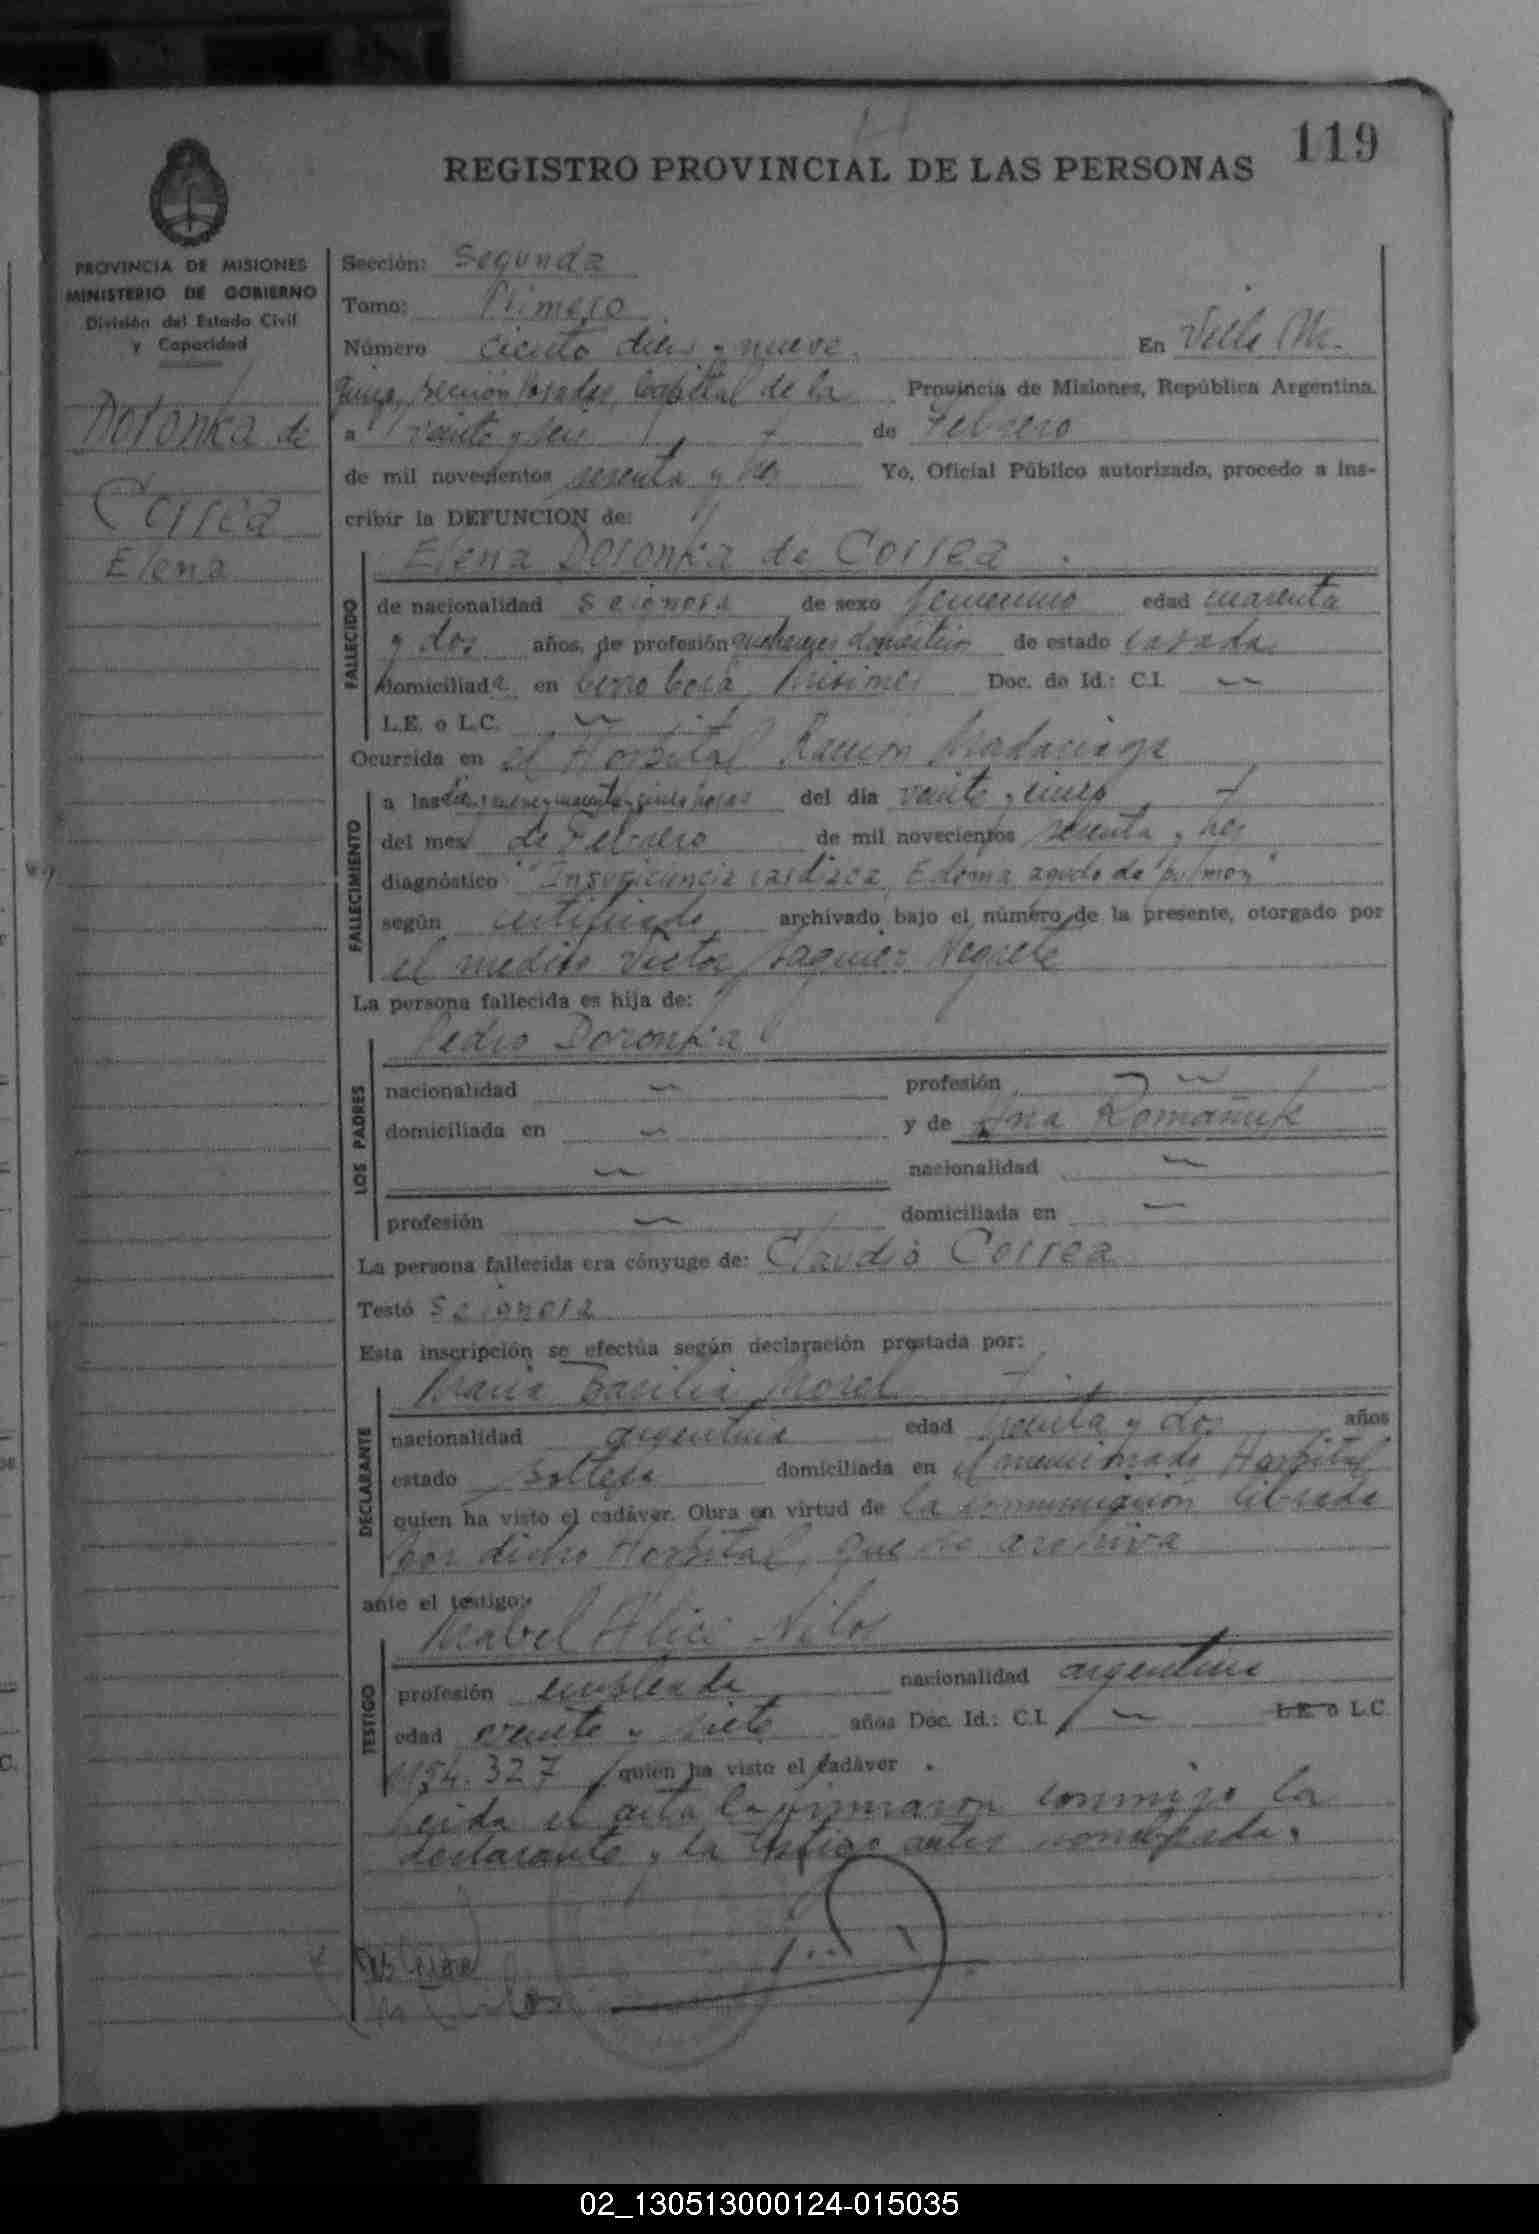 119
REGISTRO PROVINCIAL DE LAS PERSONAS
PROVINCIA DE MISIONES
MINISTERIO DE GOBIERNO
División del Estado Civil
y Capacidad
Doronka de
Correa
Elena
Sección: Segunda
Tomo: Primero
Número ciento diez y nueve En Villa
sección Posadas, Capital de la Provincia de Misiones, República Argentina.
a veinte y seis de Febrero
de mil novecientos sesenta y tres Yo, Oficial Público autorizado, procedo a ins-
cribir la DEFUNCION de:
Elena Doronka de Correa
FALLECIDO
de nacionalidad de sexo femenino edad cuarenta
y dos años, de profesión quehaceres domésticos de estado casada
domiciliada en Cerro Corá, Misiones Doc. de Id.: C.I.
L.E. o L.C.
Ocurrida en el Hospital Ramón Madariaga
FALLECIMIENTO
a las diez y nueve y cuarenta y cinco horas del día veinte y cinco
del mes de Febrero de mil novecientos sesenta y tres
diagnóstico "Insuficiencia cardiaca, Edema agudo de pulmón"
según certificado archivado bajo el número de la presente, otorgado por
el medico Victor Negrete
La persona fallecida es hija de:
Pedro Doronka
LOS PADRES
nacionalidad profesión
domiciliada en y de Ana Romañuk
nacionalidad
profesión domiciliada en
La persona fallecida era cónyuge de: Claudio Correa
Testó
Esta inscripción se efectúa según declaración prestada por:
Maria Basilia Morel
DECLARANTE
nacionalidad argentina edad treinta y dos años
estado soltera domiciliada en el mencionado Hospital
quien ha visto el cadáver. Obra en virtud de la comunicación librada
por dicho Hospital, que se archiva
ante el testigo:
Mabel Alicia
TESTIGO
profesión empleada nacionalidad argentina
edad veinte y siete años Doc. Id.: C.I. L.E. o L.C.
327 quien ha visto el cadáver .
Leida el acta la firmaron conmigo la
declarante y la testigo antes nombrada.
02_130513000124-015035